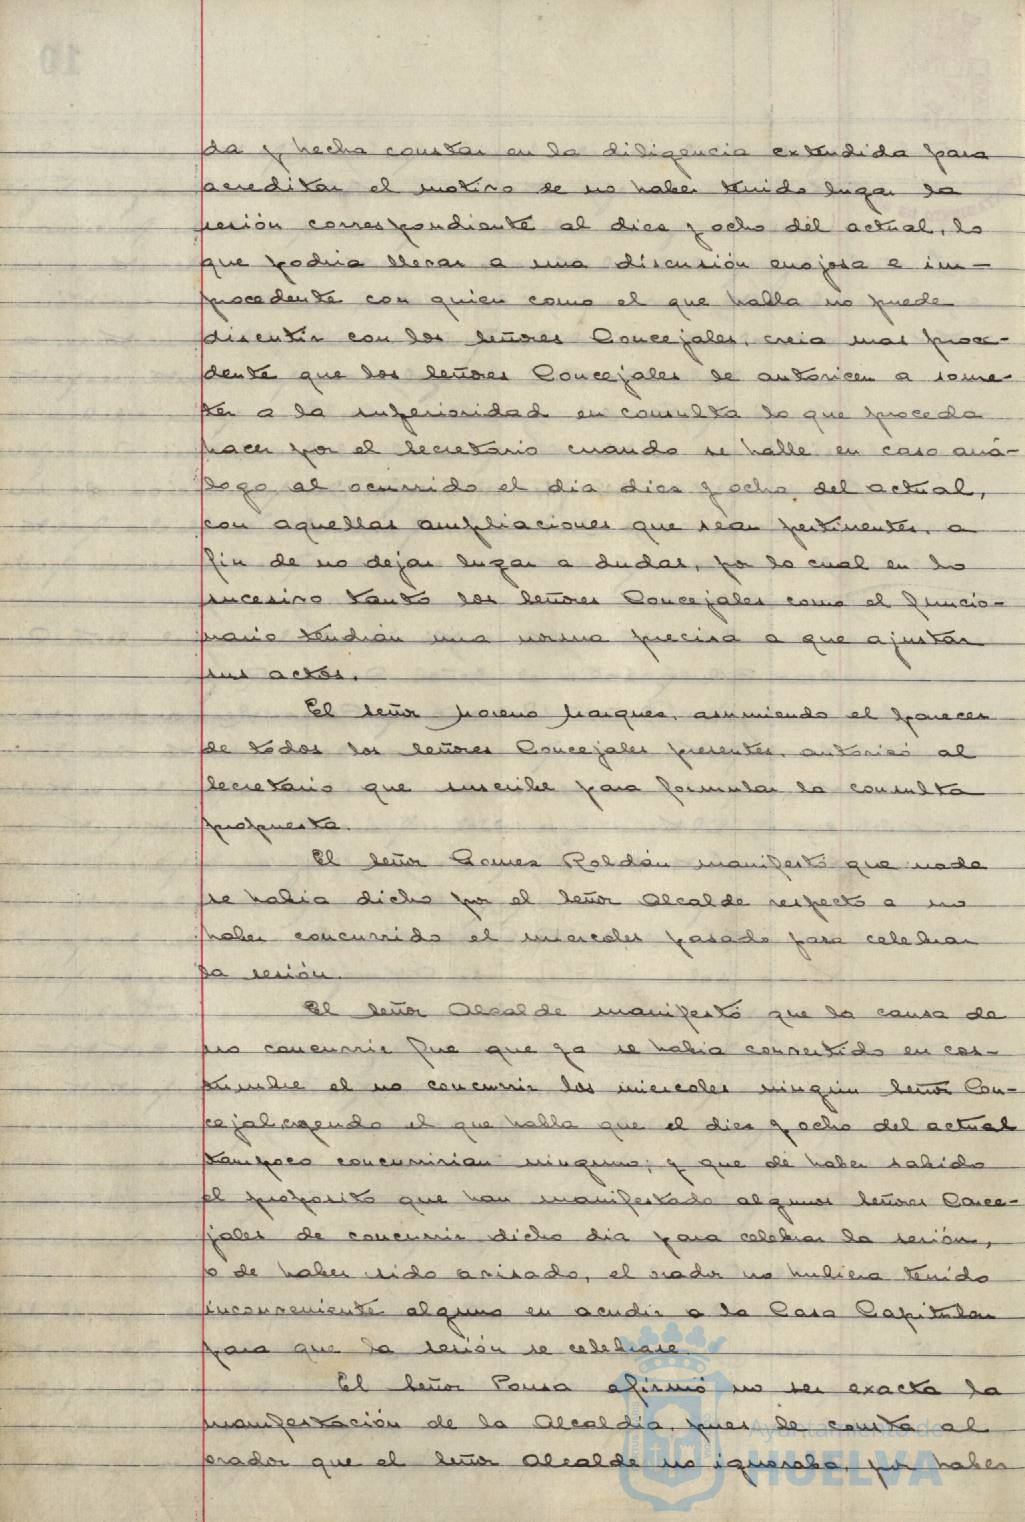 da y hecha constar en la diligencia extendida para
acreditar el motivo de no haber tenido lugar la
sesión correspondiente al diez y ocho del actual, lo
que podria llevar a una discusión enojosa e im-
procedente con quien como el que habla no puede
discutir con los señores Concejales, creia mas proce-
dente que los señores Concejales le autoricen a some-
ter a la superioridad en consulta lo que proceda
hacer por el Secretario cuando se halle en caso aná-
logo al ocurrido el dia diez y ocho del actual,
con aquellas ampliaciones que sean pertinentes, a
fin de no dejar lugar a dudas, por lo cual en lo
sucesivo tanto los señores Concejales como el funcio-
nario tendrán una norma precisa a que ajustar
sus actos.
El señor Moreno Marquez, asumiendo el parecer
de todos los señores Concejales presentes, autorizó al
Secretario que suscribe para formular la consulta
propuesta.
El señor Gomez Roldán manifestó que nada
se habia dicho por el señor Alcalde respecto a no
haber concurrido el miercoles pasado para celebrar
la sesión.
El señor Alcalde manifestó que la causa de
no concurrir fue que ya se habia convertido en cos-
tumbre el no concurrir los miercoles ningún señor Con-
cejal, creyendo el que habla que el diez y ocho del actual
tampoco concurririan ninguno; y que de haber sabido
el proposito que han manifestado algunos señores Conce-
jales de concurrir dicho dia para celebrar la sesión,
o de haber sido avisado, el orador no hubiera tenido
inconveniente alguno en acudir a la Casa Capitular
para que la sesión se celebrase.
El señor Ponsa afirmó no ser exacta la
manifestación de la Alcaldia, pues le consta al
orador que el señor Alcalde no ignoraba, por haber
Ayuntamiento de
HUELVA